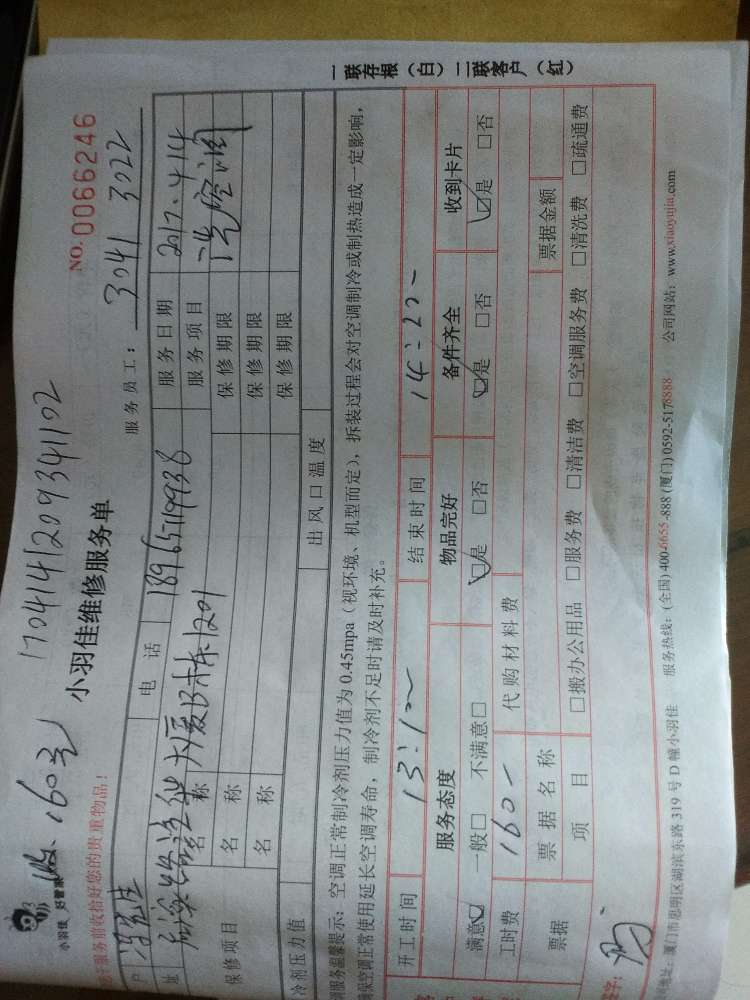 1704141209341102
160元
小羽佳 好管家
小羽佳维修服务单
NO. 0066246
于服务前收拾好您的贵重物品!
服务员工: 3041 3022
户
电话 18965119938
服务日期 2017.4.14
地
大厦B栋1201
服务项目 洗空调
保修项目
名称 保修期限
名称 保修期限
名称 保修期限
冷剂压力值
出风口温度
调服务温馨提示:空调正常制冷剂压力值为 0.45mpa(视环境、机型而定),拆装过程会对空调制冷或制热造成一定影响,
保空调正常使用延长空调寿命,制冷剂不足时请及时补充。
开工时间 13:10 结束时间 14:20
服务态度 物品完好 备件齐全 收到卡片
满意☑ 一般□ 不满意□ ☑是 □否 ☑是 □否 ☑是 □否
工时费 160 代购材料费
票据 票据名称 票据金额
项目 □搬办公用品 □服务费 □清洁费 □空调服务费 □清洗费 □疏通费
字:
地址:厦门市思明区湖滨东路 319 号 D 幢小羽佳 服务热线:(全国)400-6655-888 (厦门)0592-5178888 公司网站:www.xiaoyujia.com
一联存根(白)二联客户(红)